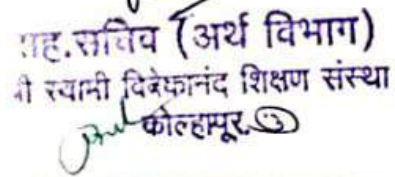 सह.सचिव (अर्थ विभाग)
श्री स्वामी विवेकानंद शिक्षण संस्था
कोल्हापूर.